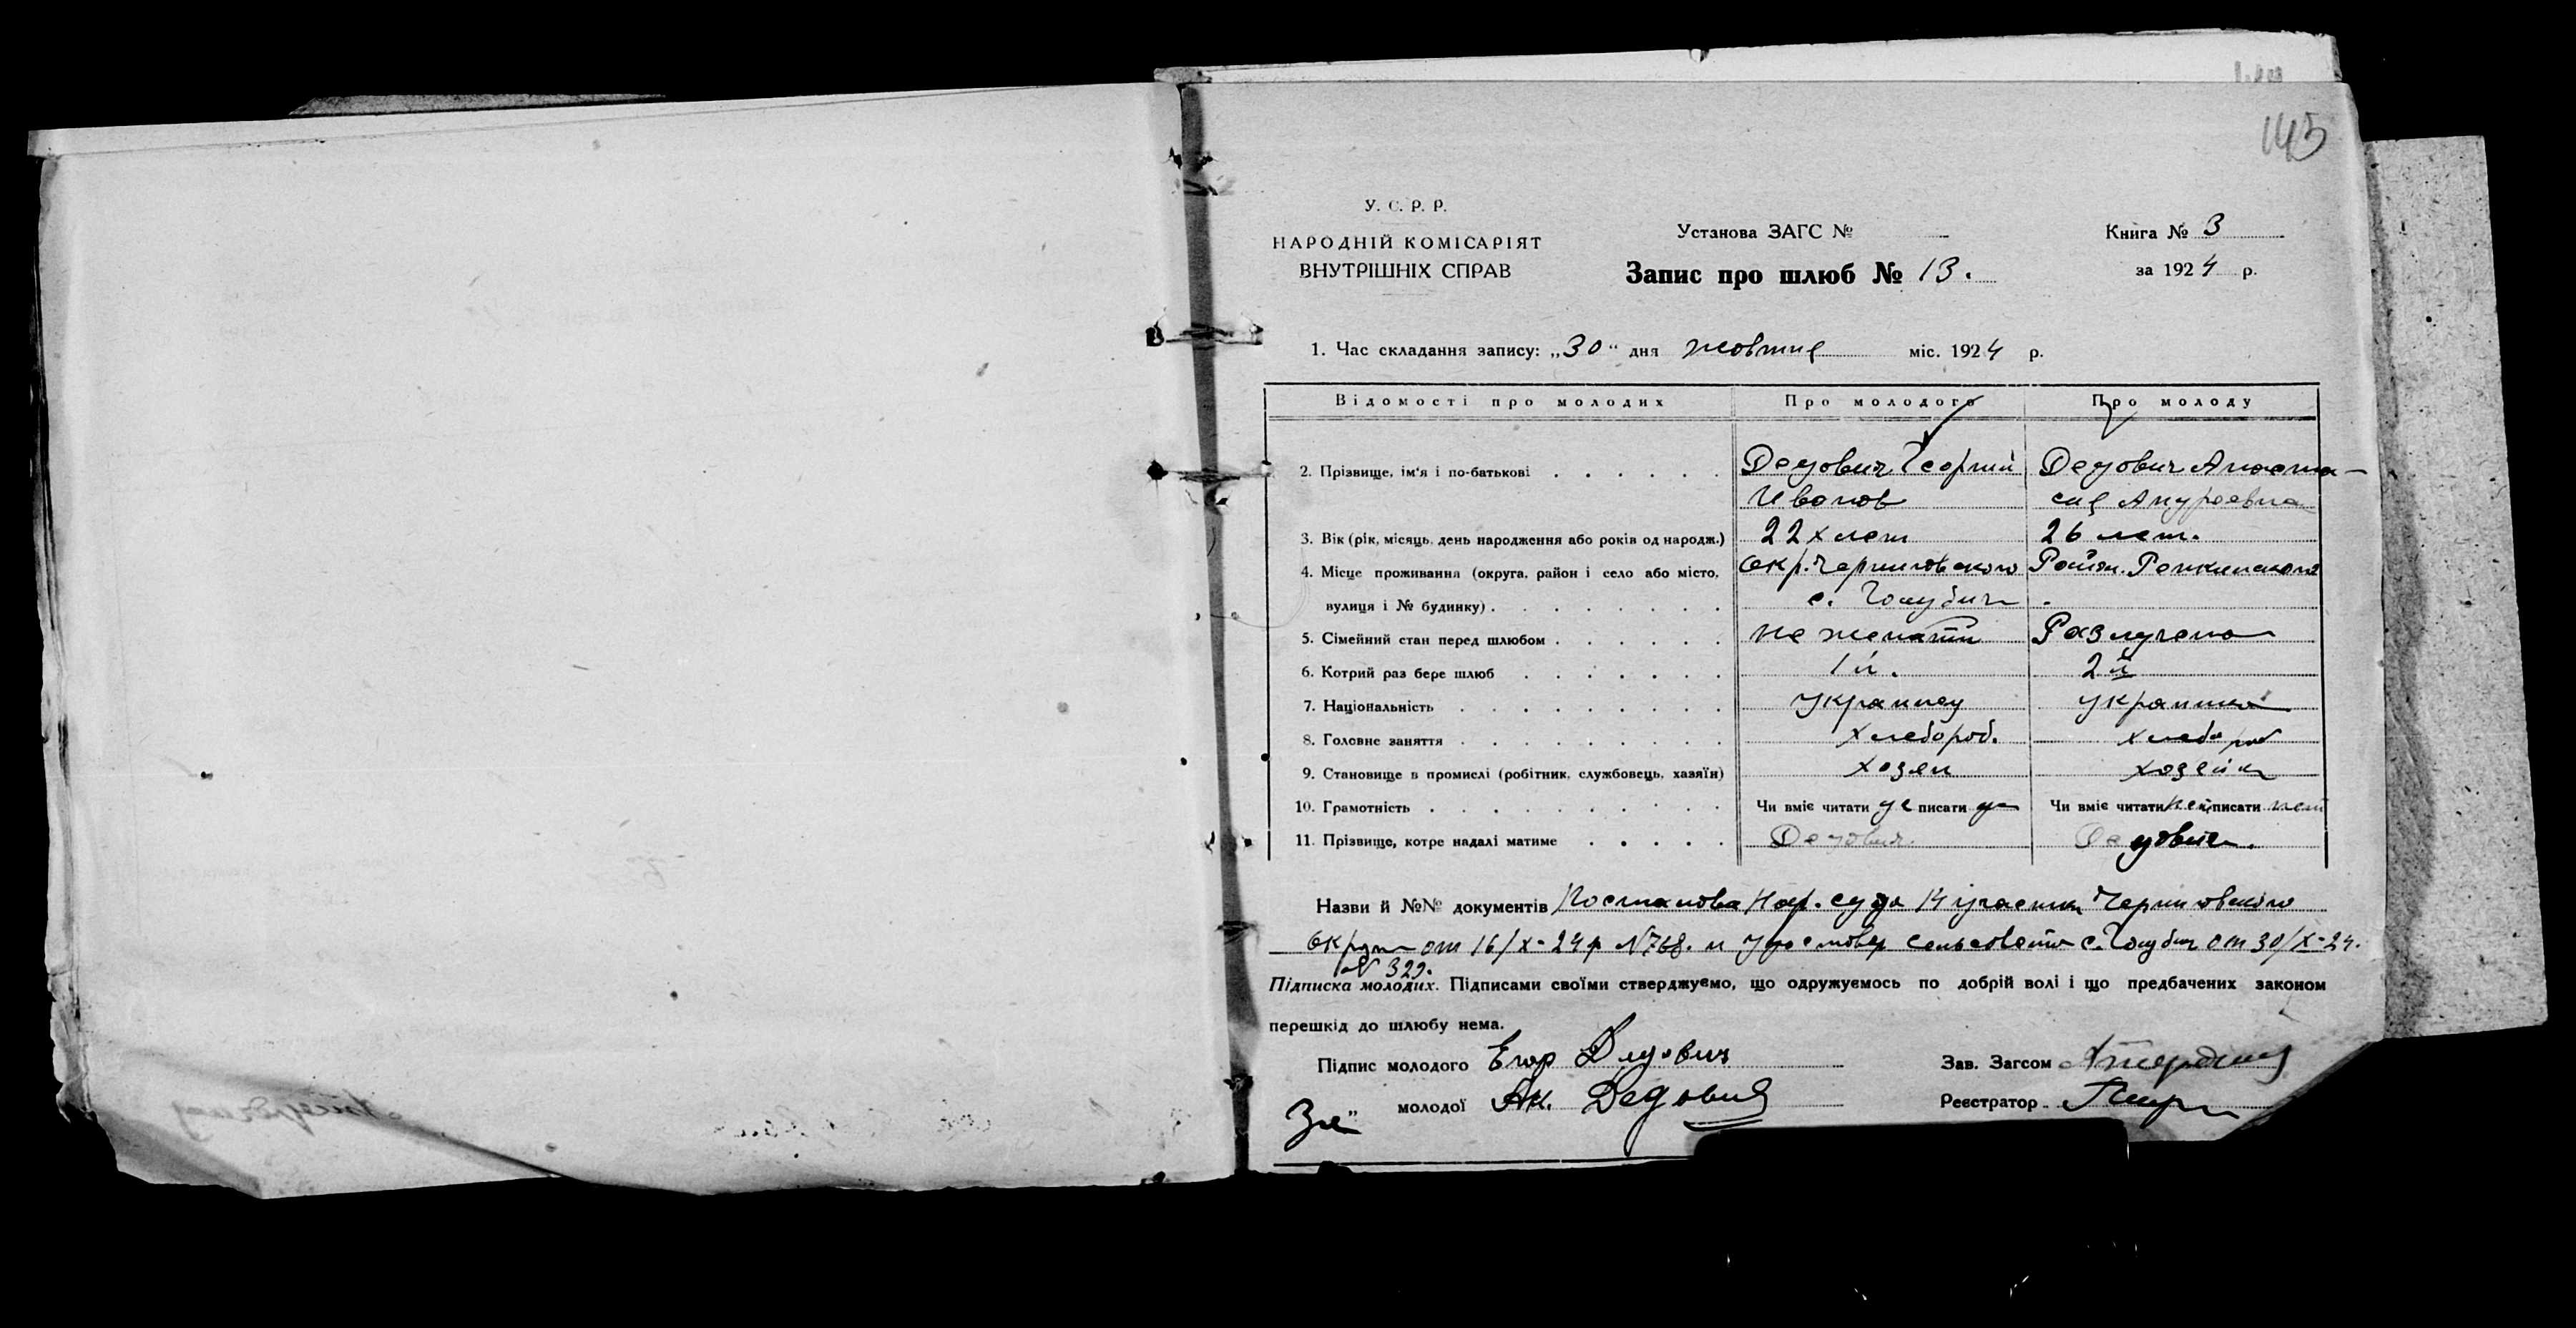 145
У. С. Р. Р.
НАРОДНІЙ КОМІСАРІЯТ
ВНУТРІШНІХ СПРАВ
Установа ЗАГС № —
Запис про шлюб № 13.
Книга № 3
за 1924 р.
1. Час складання запису: „30" дня жовтня міс. 1924 р.
Відомості про молодих Про молодого Про молоду
2. Прізвище, ім'я і по-батькові Дедович Георгий Дедович Анаста-
Иванов сия Андреевна
3. Вік (рік, місяць, день народження або років од народж.) 22х лет 26 лет.
4. Місце проживання (округа, район і село або місто, Окр. Черниговского Район. Репкинского
вулиця і № будинку) с. Голубич
5. Сімейний стан перед шлюбом не женатый Разлучена
6. Котрий раз бере шлюб 1й. 2й
7. Національність Украинец украинка
8. Головне заняття Хлебороб. хлебороб
9. Становище в промислі (робітник, службовець, хазяїн) хозяин хозяйка
10. Грамотність Чи вміє читати да писати да Чи вміє читати нет писати нет
11. Прізвище, котре надалі матиме Дедович. Дедович.
Назви й №№ документів Постанова Нар. суда участка Черниговского
Округи от 16/X-24 р №768. и удостовер сельсовета с. Голубич от 30/X-24.
№ 329.
Підписка молодих. Підписами своїми стверджуємо, що одружуємось по добрій волі і що предбачених законом
перешкід до шлюбу нема.
Підпис молодого Егор Дедович
Зав. Загсом
молодої Ан. Дедович
Реєстратор